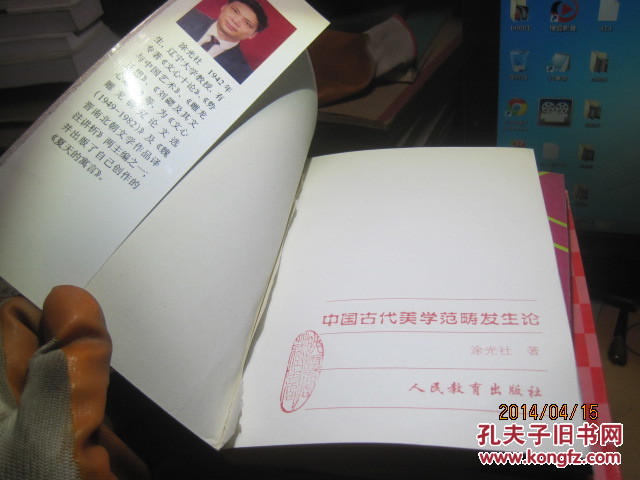 涂光社，1942年
生，辽宁大学教授，有
专著《文心十论》《势
与中国艺术》、《雕龙
(1949-1982)》及《魏
晋南北朝文学作品译
注讲析》两主编之一，
并出版了自己创作的
《夏天的寓言》。
中国古代美学范畴发生论
涂光社 著
人民教育出版社
2014/04/15
孔夫子旧书网
www.kongfz.com